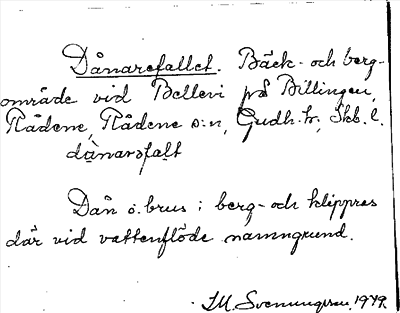 Dånarefallet. Bäck- och berg-
område vid Bellevi på Billingen,
Rådene, Rådene s:n, Gudh. hr., Skb. l.
då̀narəfalt
Dån o. brus i berg- och klippras
där vid vattenflöde namngrund.
S.M. Svenungsson, 1949.